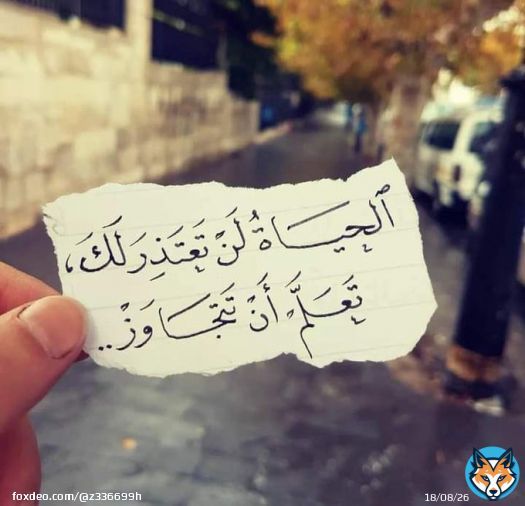 الحياةُ لَنْ تَعْتَذِرَ لَكَ،
تَعَلَّمْ أَنْ تَتَجَاوَزْ..
foxdeo.com/@z336699h
18/08/26